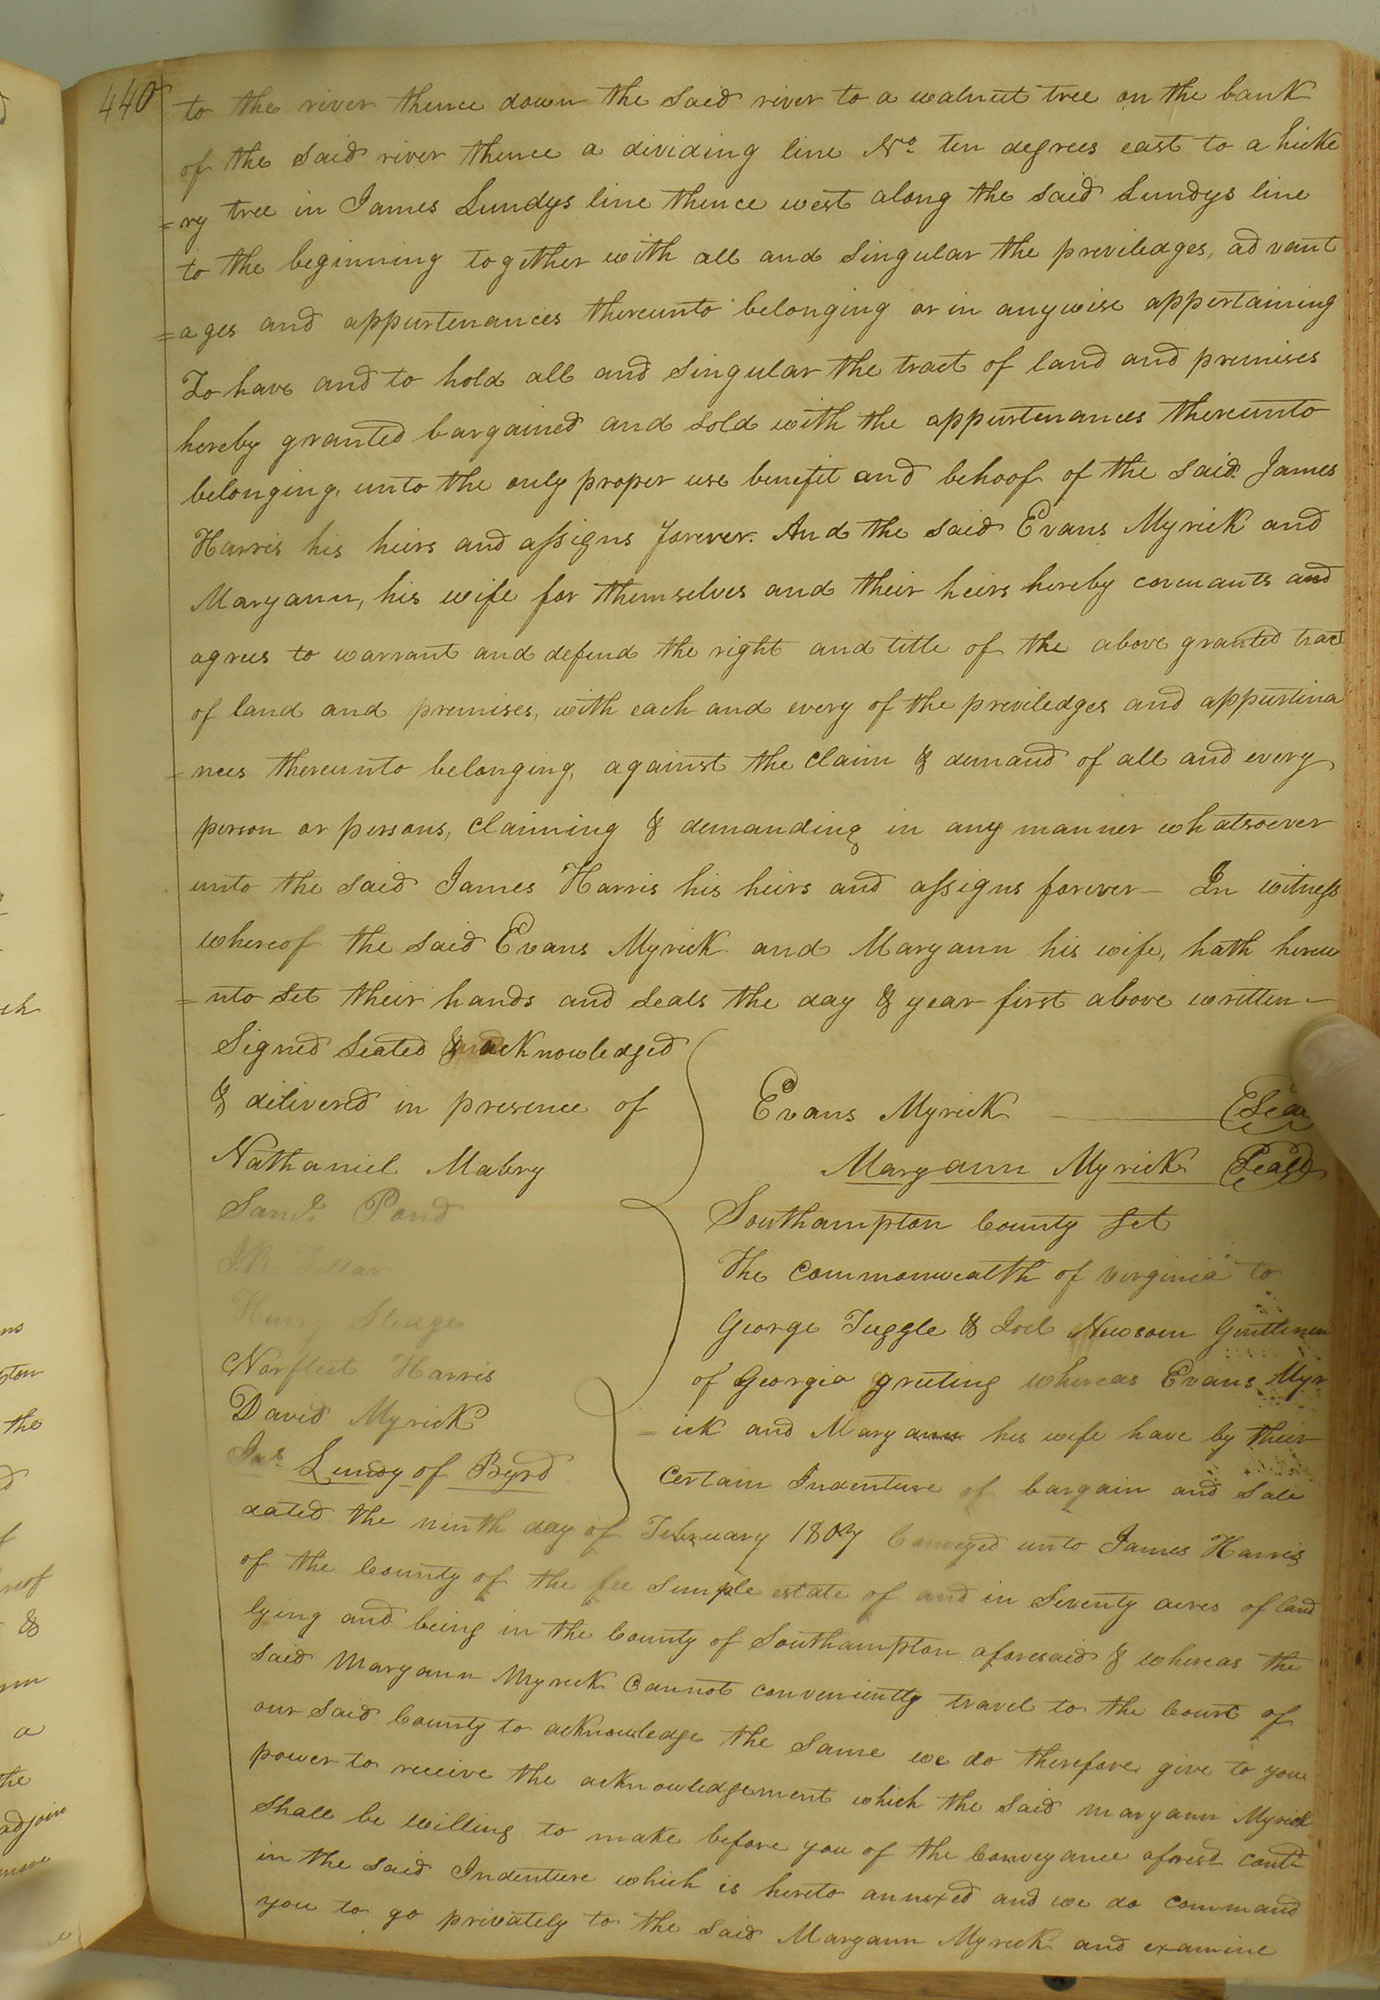 440
to the river thence down the said river to a walnut tree on the bank
of the said river thence a dividing line No. ten degrees east to a hicko
=ry tree in James Lundys line thence west along the said Lundys line
to the beginning together with all and singular the previledges, advant
=ages and appurtenances thereunto belonging or in anywise appertaining
To have and to hold all and singular the tract of land and premises
hereby granted bargained and sold with the appurtenances thereunto
belonging, unto the only proper use benefit and behoof of the said James
Harris his heirs and assigns forever. And the said Evans Myrick and
Maryann, his wife for themselves and their heirs hereby covenants and
agrees to warrant and defend the right and title of the above granted tract
of land and premises, with each and every of the previledges and appurtina
=nces thereunto belonging, against the claim & demand of all and every
person or persons, claiming & demanding in any manner whatsoever
unto the said James Harris his heirs and assigns forever— In witness
whereof the said Evans Myrick and Maryann his wife, hath hereu
=nto set their hands and seals the day & year first above written—
Signed Sealed & acknowledged
& delivered in presence of
Nathaniel Mabry
Saml. Pond
Henry Sledge
Norfleet Harris
David Myrick
Jas. Lundy of Byrd
Evans Myrick Seal
Maryann Myrick Seal
Southampton County Set
The commonwealth of Virginia to
George Tuggle & Joel Newsom Gentlemen
of Georgia greeting whereas Evans Myr
=ick and Maryann his wife have by their
certain Indenture of bargain and Sale
dated the ninth day of February 1807 Conveyed unto James Harris
of the County of the fee simple estate of and in Seventy acres of land
lying and being in the County of Southampton aforesaid & whereas the
said Maryann Myrick Cannot conveniently travel to the Court of
our said County to acknowledge the same we do therefore give to you
power to receive the acknowledgement which the said Maryann Myrick
shall be willing to make before you of the Conveyance aforesd contd
in the said Indenture which is hereto annexed and we do command
you to go privately to the said Maryann Myrick and examine